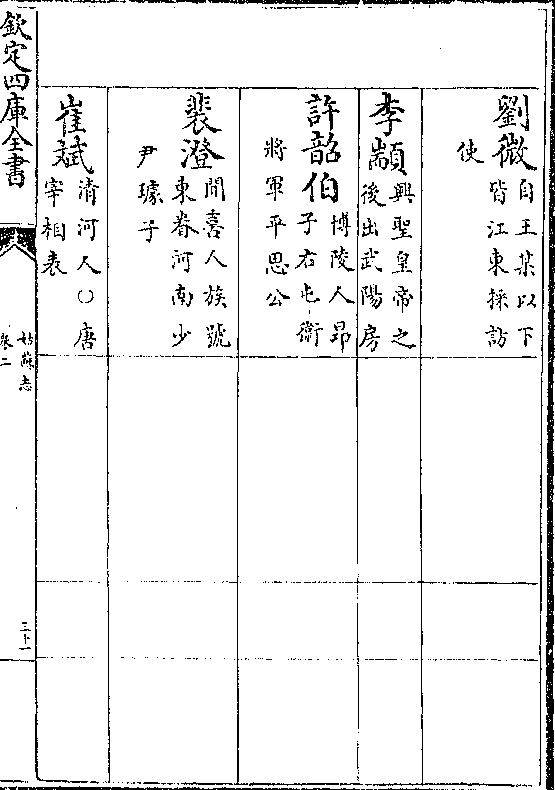 劉微自王某以下
皆江東採訪
使
李顓興聖皇帝之
後出武陽房
許韶伯博陵人昂
子右屯衛
將軍平恩公
裴澄聞喜人族號
東眷河南少
尹璩子
崔斌清河人○唐
宰相表
欽定四庫全書
姑蘇志
卷二
三十一